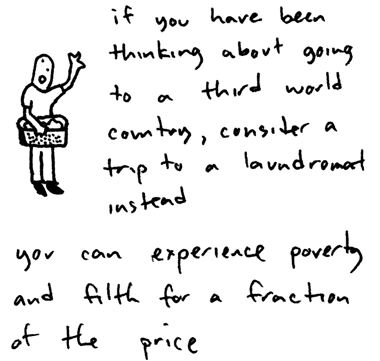 if you have been
thinking about going
to a third world
country, consider a
trip to a laundromat
instead
you can experience poverty
and filth for a fraction
of the price